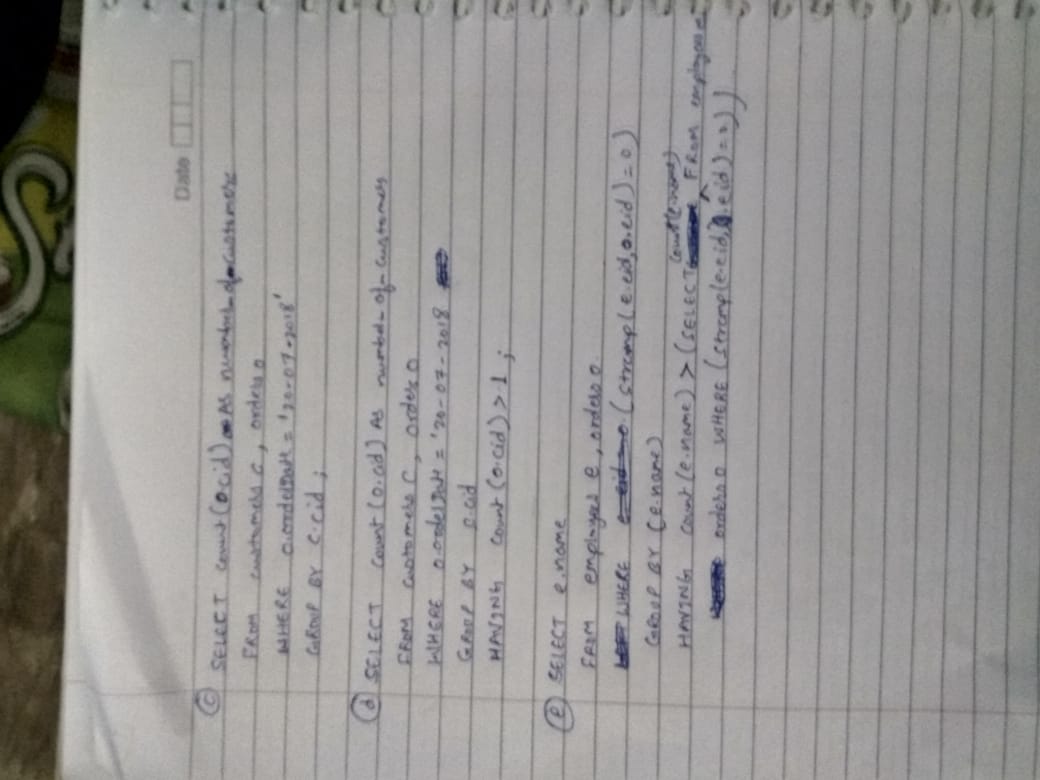 Date
(c) SELECT count(o.cid) As number_of_customers
FROM customers c, orders o
WHERE o.orderDate = '20-07-2018'
GROUP BY c.cid ;
(d) SELECT count(o.cid) As number_of_customers
FROM customers c, orders o
WHERE o.orderDate = '20-07-2018
GROUP BY o.cid
HAVING count(o.cid) > 1 ;
(e) SELECT e.name
FROM employees e, orders o.
WHERE (strcmp(e.eid, o.eid) = 0)
GROUP BY (e.name)
HAVING count(e.name) > (SELECT count(e.name) FROM employees
orders o WHERE (strcmp(e.eid, o.eid) = 0))